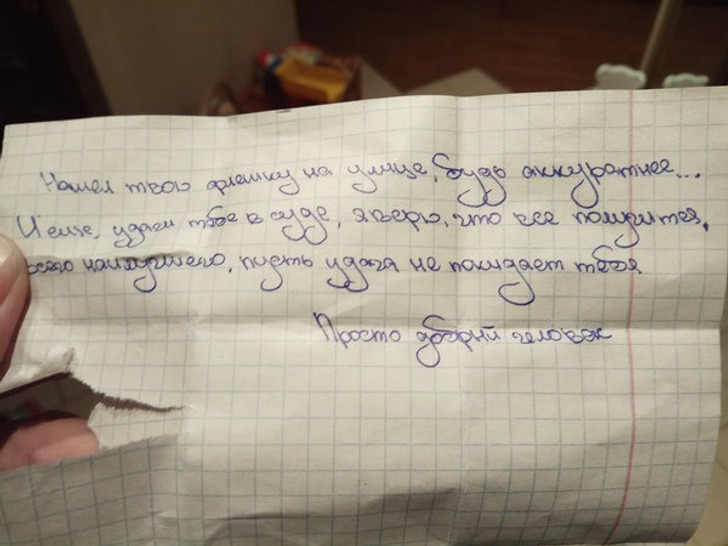 Нашел твою флешку на улице, будь аккуратнее...
И еще, удачи тебе в суде, я верю, что все получится,
всего наилучшего, пусть удача не покидает тебя
Просто добрый человек